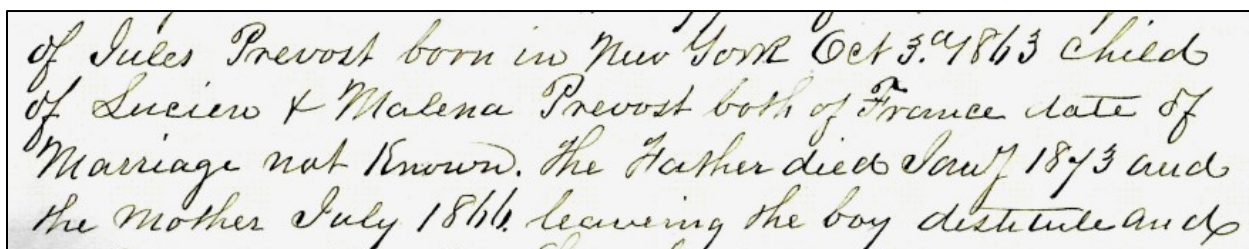 of Jules Prevost born in New York Oct 3.d 1863 child
of Lucien & Malena Prevost both of France date of
Marriage not Known. the Father died Jany 1873 and
the mother July 1866. leaving the boy destitute and